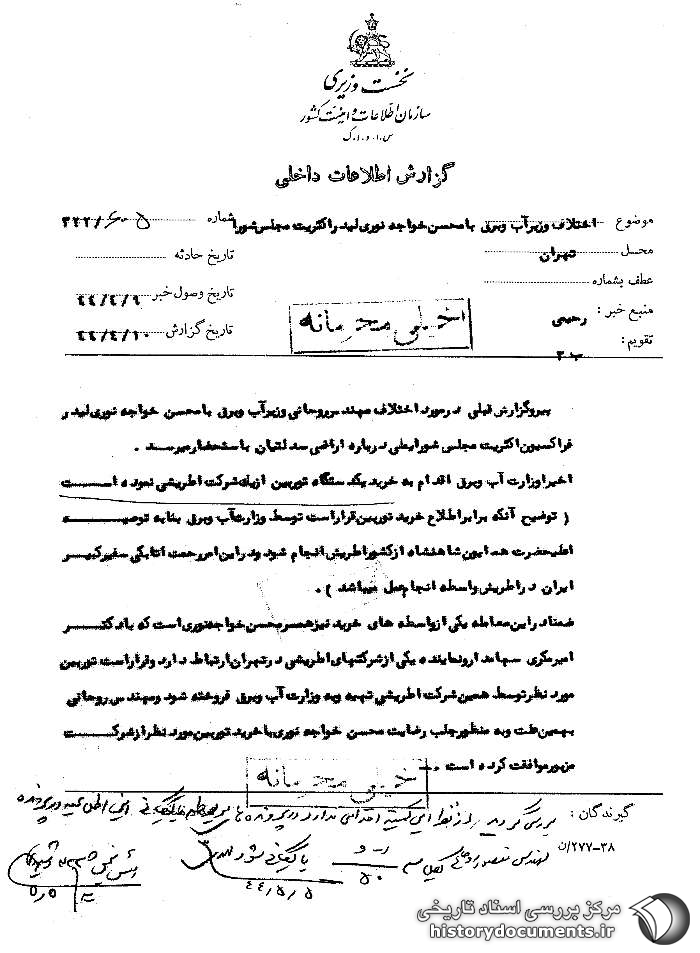 نخست وزیری
سازمان اطلاعات و امنیت کشور
س.ا.و.ا.ک
گزارش اطلاعات داخلی
موضوع اختلاف وزیر آب وبرق با محسن خواجه نوری لیدر اکثریت مجلس شورا شماره ۳۲۲/۶۰۵
محل تهران تاریخ حادثه
عطف بشماره تاریخ وصول خبر ۴۴/۴/۹
منبع خبر : رحیمی تاریخ گزارش ۴۴/۴/۱۰
تقویم : ب ۲
خیلی محرمانه
پیرو گزارش قبلی در مورد اختلاف مهندس روحانی وزیر آب وبرق با محسن خواجه نوری لیدر
فراکسیون اکثریت مجلس شورایملی درباره اراضی سد لتیان باستحضار میرسد .
اخیرا وزارت آب وبرق اقدام به خرید یکدستگاه توربین از یک شرکت اطریشی نموده است
( توضیح آنکه برابر اطلاع خرید توربین قرار است توسط وزارت آب وبرق بنابه توصیه
اعلیحضرت همایون شاهنشاه از کشور اطریش انجام شود ودر این امر رحمت اتابکی سفیر کبیر
ایران در اطریش واسطه انجام عمل میباشد ) .
ضمنا در این معامله یکی از واسطه های خرید نیز همسر محسن خواجه نوری است که با دکتر
امیر مکری سهامدار و نماینده یکی از شرکتهای اطریشی در تهران ارتباط دارد وقرار است توربین
مورد نظر توسط همین شرکت اطریشی تهیه وبه وزارت آب وبرق فروخته شود ومهندس روحانی
بهمین علت وبه منظور جلب رضایت محسن خواجه نوری با خرید توربین مورد نظر از شرکت
مزبور موافقت کرده است .
خیلی محرمانه
گیرندگان : بررسی گردید
۳۸-۲۷۷/ن مهندس منصور روحانی
بایگانی شود
۴۴/۵/۵
مرکز بررسی اسناد تاریخی
historydocuments.ir